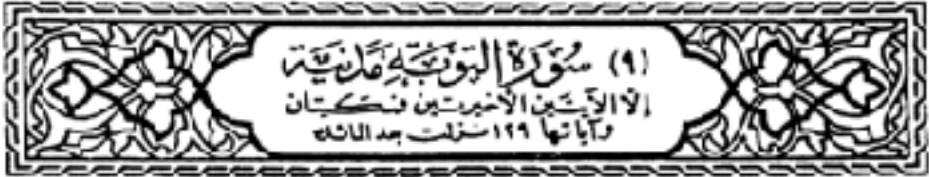 (٩) سُورَةُ التَوْبَةِ مَدَنيَّة
إلا الآيتين الأخيرتين فمكيتان
وآياتها ١٢٩ نزلت بعد المائدة